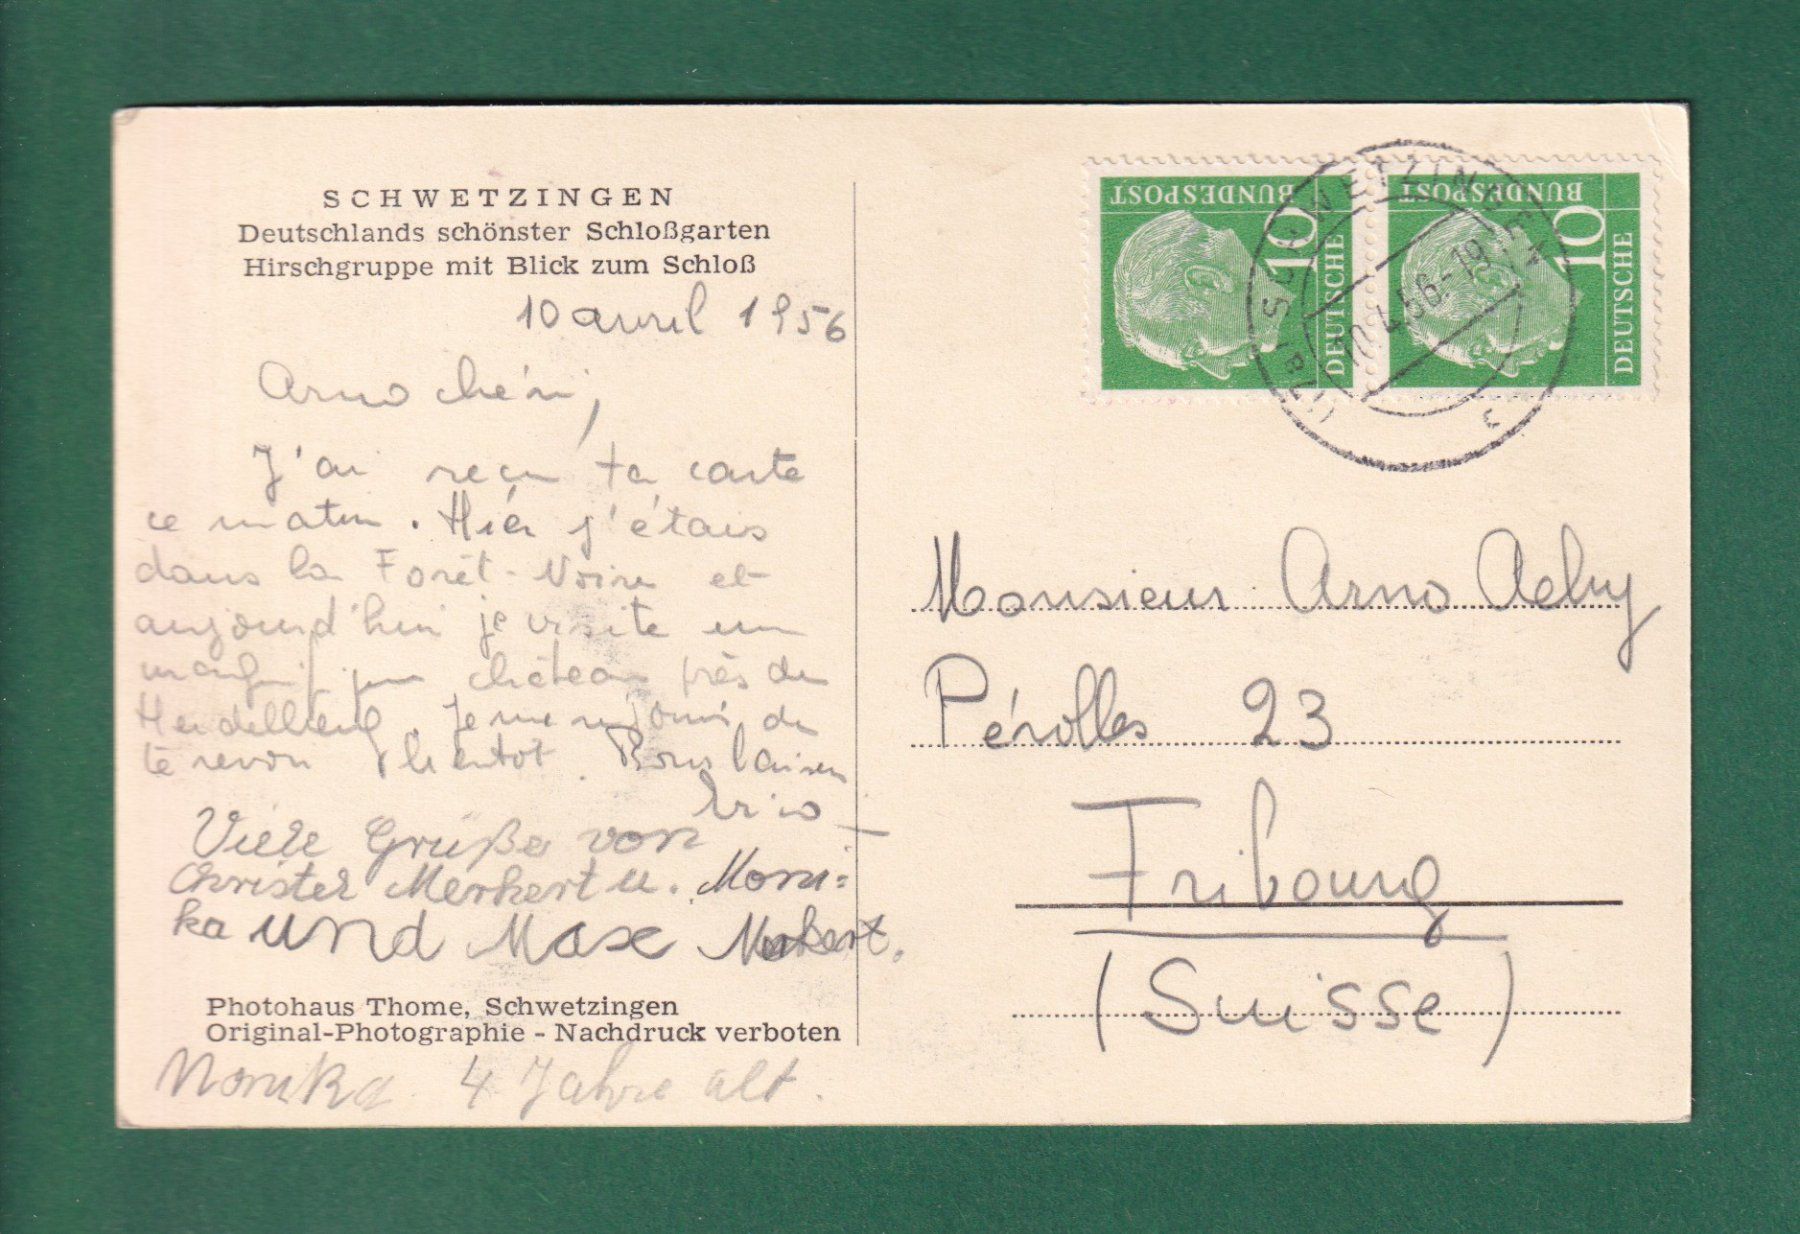 SCHWETZINGEN
Deutschlands schönster Schloßgarten
Hirschgruppe mit Blick zum Schloß
10 avril 1956
Arno chéri,
J'ai reçu ta carte
ce matin. Hier j'étais
dans la Forêt-Noire et
aujourd'hui je visite un
magnifique château près de
Heidelberg. Je me réjouis de
te revoir bientôt. Bons baisers
Viele Grüße von
Christel Merkert u. Moni=
ka und Max Merkert.
Photohaus Thome, Schwetzingen
Original-Photographie - Nachdruck verboten
Monika 4 Jahre alt.
DEUTSCHE
BUNDESPOST
10
DEUTSCHE
BUNDESPOST
10
SCHWETZINGEN
56.-19
Monsieur Arno Aeby
Pérolles 23
Fribourg
(Suisse)